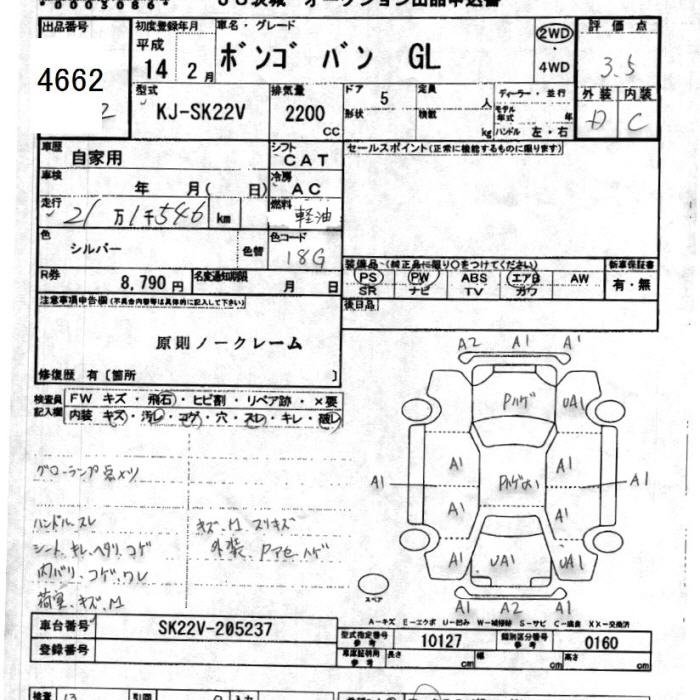 *00030864*
JU茨城 オークション出品申込書
出品番号
4662
2
初度登録年月
平成
14 2月
車名・グレード
ボンゴ バン GL
2WD
・
4WD
評価点
3.5
外装 内装
D C
型式
KJ-SK22V
排気量
2200
CC
ドア
5
形状
定員
人
積載
kg
ディーラー・並行
モデル年式 年
ハンドル 左・右
車歴
自家用
シフト
CAT
車検
年 月( 日)
冷房
AC
走行
21万1千546km
燃料
軽油
色
シルバー
色替
色コード
18G
R券
8,790円
名変通知期限
月 日
セールスポイント(正常に機能するものに限ります)
装備品~(純正品に限り○をつけてください)
PS PW ABS エアB AW
SR ナビ TV カワ
新車保証書
有・無
後日品
注意事項申告欄(不具合内容等は具体的に記入して下さい)
原則ノークレーム
修復歴 有〔箇所 〕
検査員記入欄
FW キズ・飛石・ヒビ割・リペア跡・×要
内装 キズ・汚レ・コゲ・穴・スレ・キレ・破レ
グローランプ点メツ
ハンドルスレ
シート、キレ、ヘタリ、コゲ
内バリ、コゲ、ワレ
荷室、キズ、M
キズ、M、スリキズ
外装 Pアセハゲ
A2 A1 A1
Pハゲ UA1
A1 A1
A1 A1
A1 A1
A1 UA1 UA1
A1 A2 A1
スペア
A-キズ E-エクボ U-凹み W-補修跡 S-サビ C-腐食 XX-交換済
車台番号
SK22V-205237
登録番号
型式指定番号
参考
10127
類別区分番号
参考
0160
車庫証明用
参考
長さ cm
幅 cm
高さ cm
検査 13